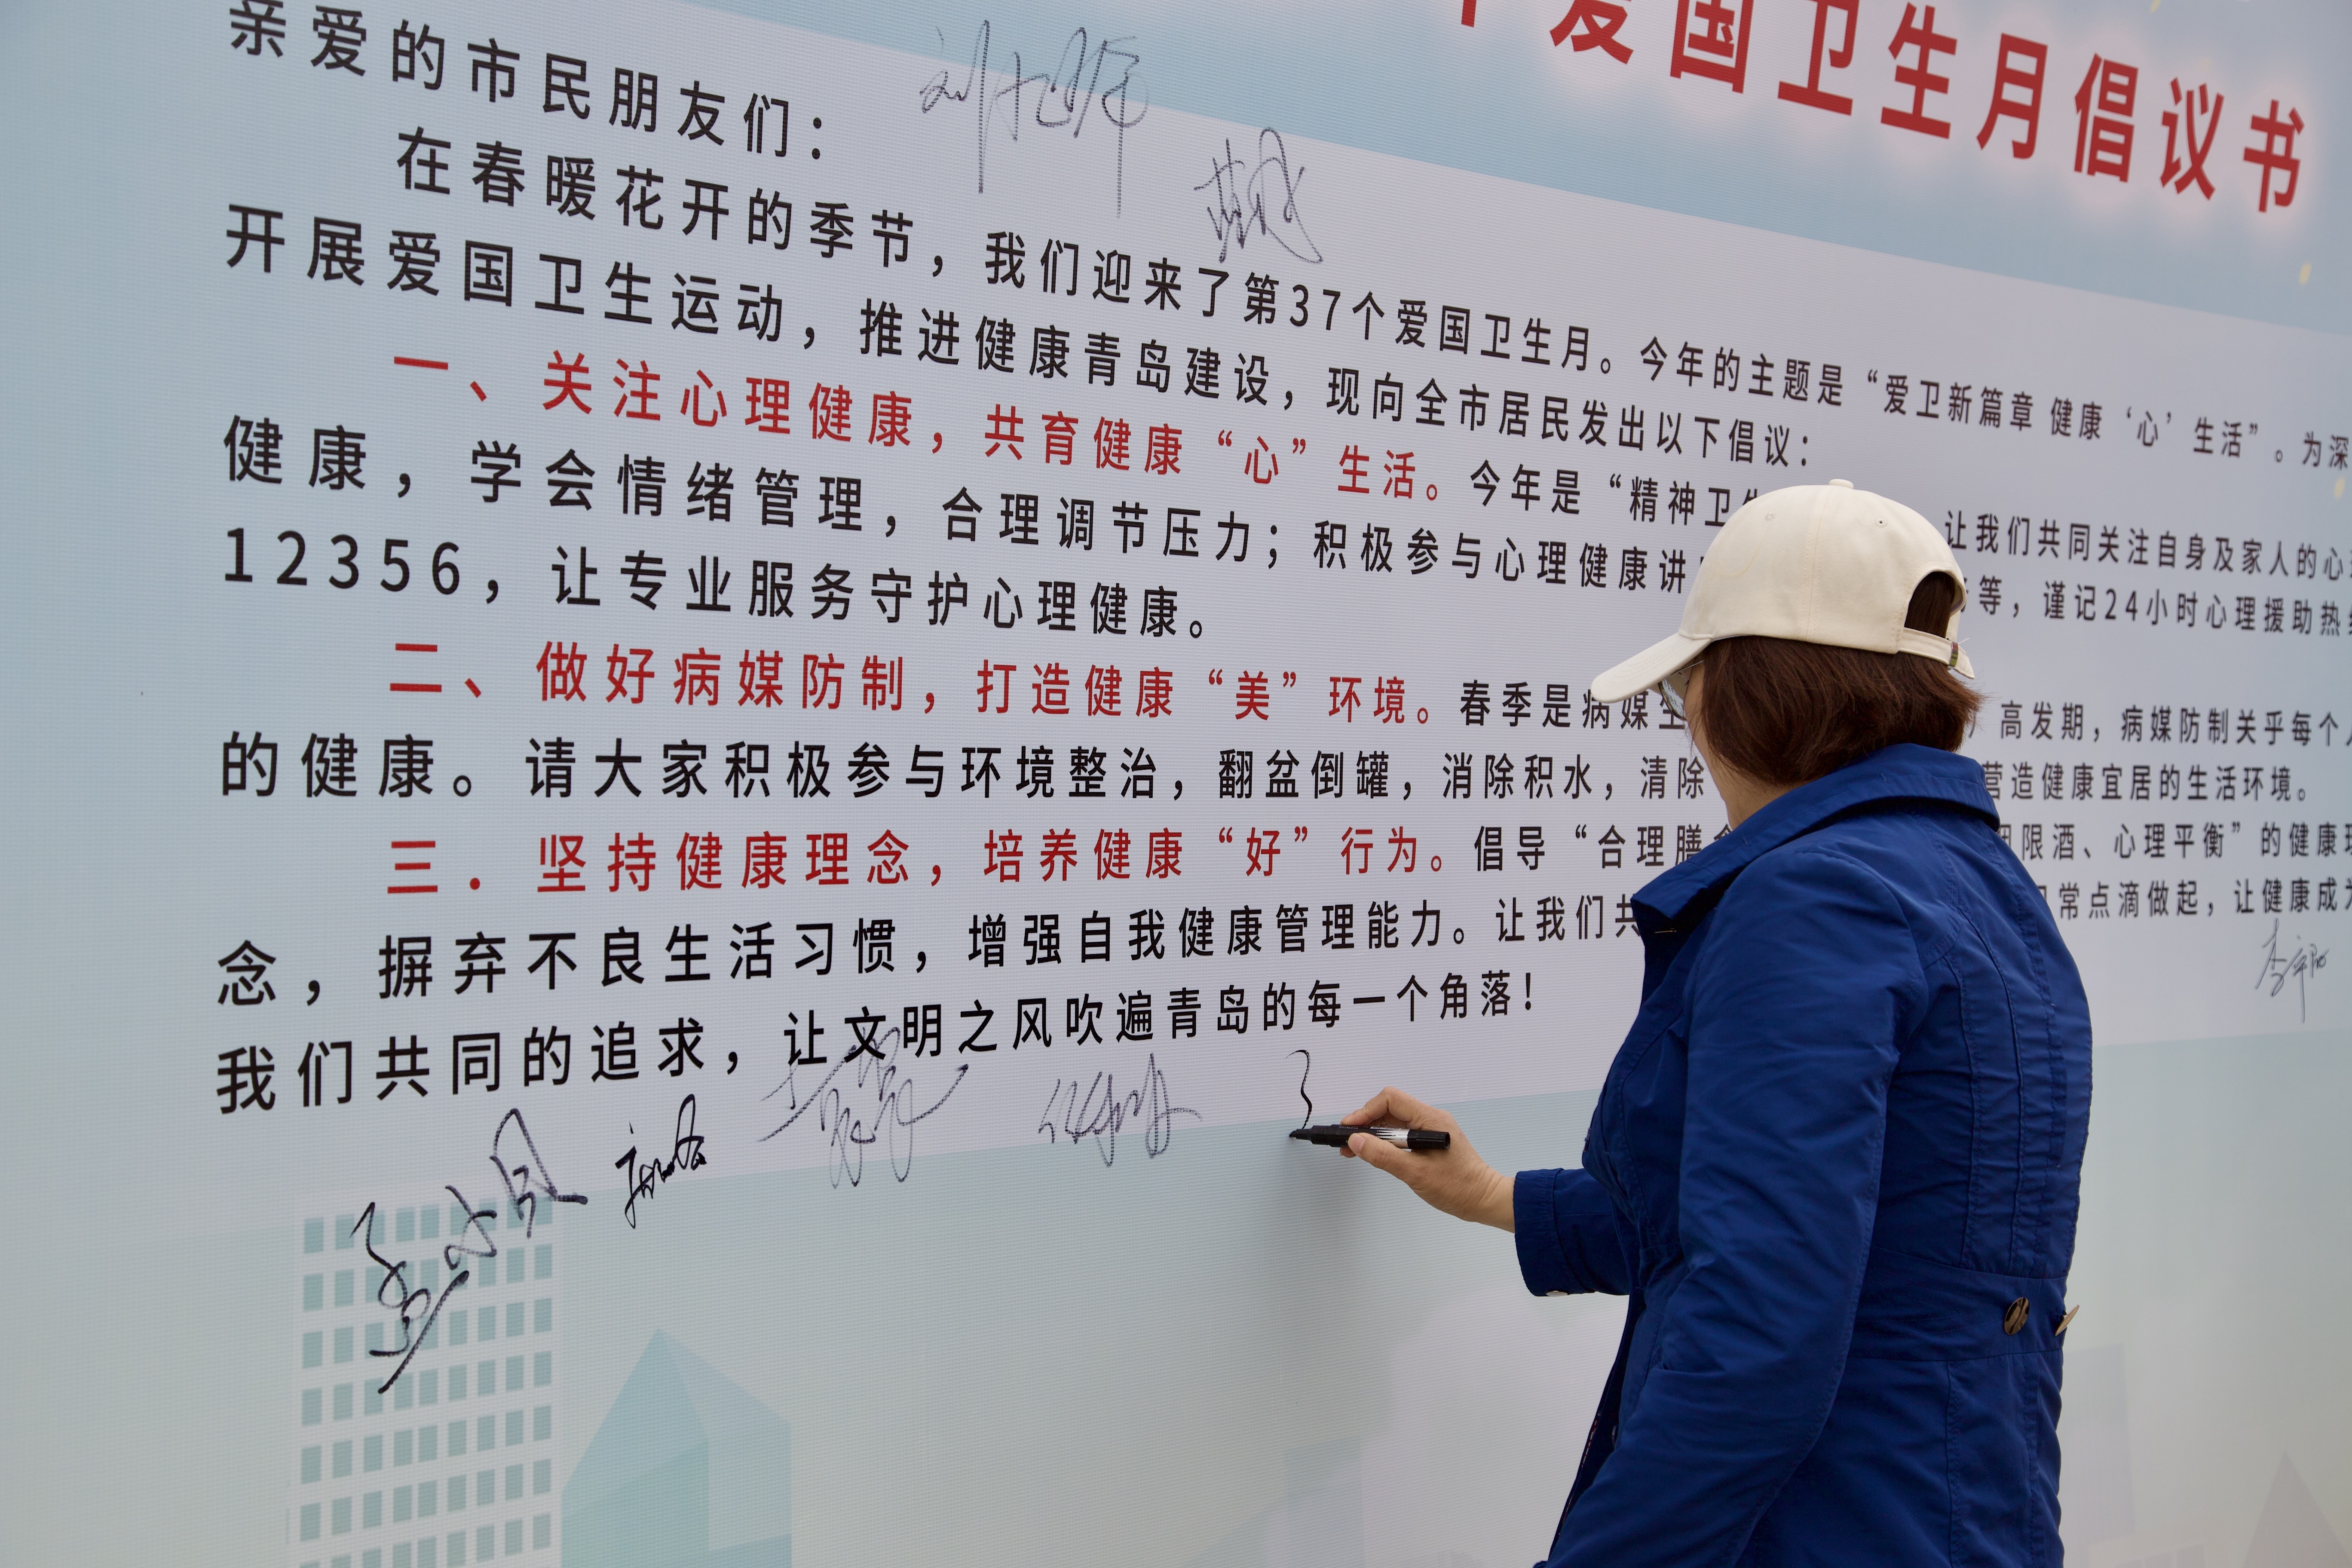 爱国卫生月倡议书
亲爱的市民朋友们：
在春暖花开的季节，我们迎来了第37个爱国卫生月。今年的主题是“爱卫新篇章 健康‘心’生活”。为深
开展爱国卫生运动，推进健康青岛建设，现向全市居民发出以下倡议：
一、关注心理健康，共育健康“心”生活。今年是“精神卫 让我们共同关注自身及家人的心
健康，学会情绪管理，合理调节压力；积极参与心理健康讲 等，谨记24小时心理援助热
12356，让专业服务守护心理健康。
二、做好病媒防制，打造健康“美”环境。春季是病媒 高发期，病媒防制关乎每个
的健康。请大家积极参与环境整治，翻盆倒罐，消除积水，清除 营造健康宜居的生活环境。
三．坚持健康理念，培养健康“好”行为。倡导“合理膳 限酒、心理平衡”的健康
念，摒弃不良生活习惯，增强自我健康管理能力。让我们共 常点滴做起，让健康成
我们共同的追求，让文明之风吹遍青岛的每一个角落！